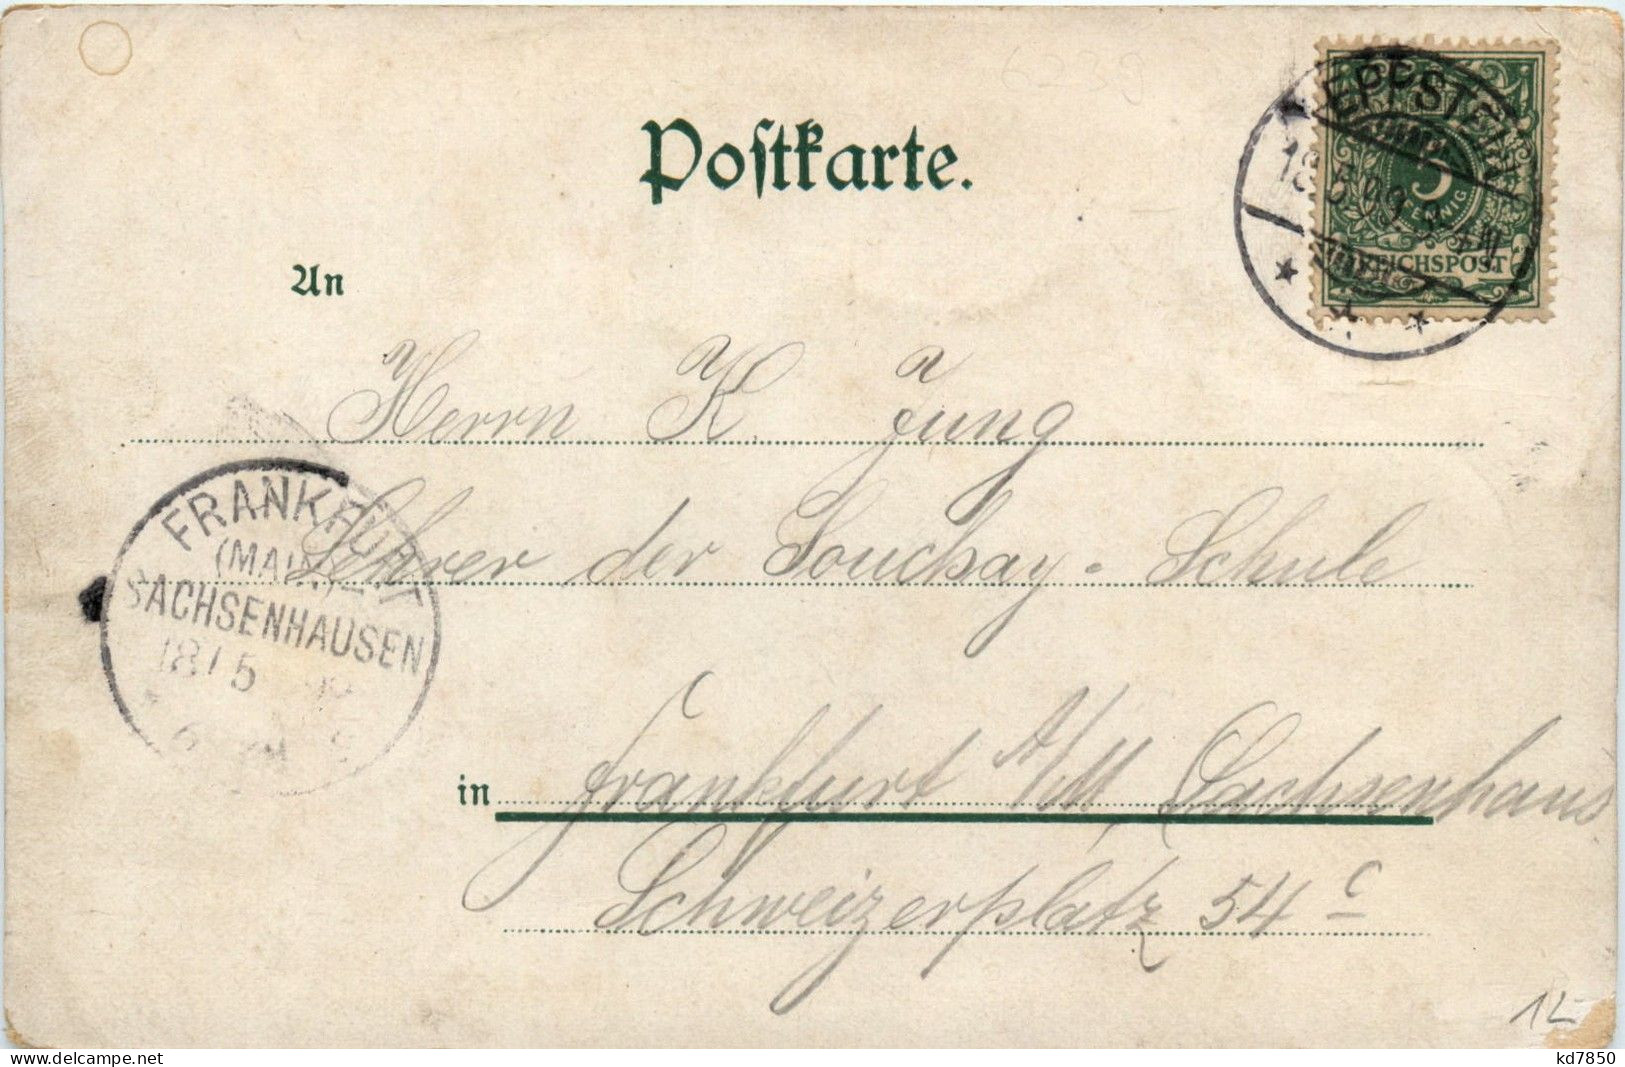 6239
Postkarte.
EPPSTEIN
18.5.99. 3-4N
5
PFENNIG
REICHSPOST
An
Herrn K. Jung
Lehrer der Souchay-Schule
FRANKFURT
(MAIN)-
SACHSENHAUSEN
18/5
in Frankfurt a/M, Sachsenhaus
Schweizerplatz 54 c
12
www.delcampe.net
kd7850